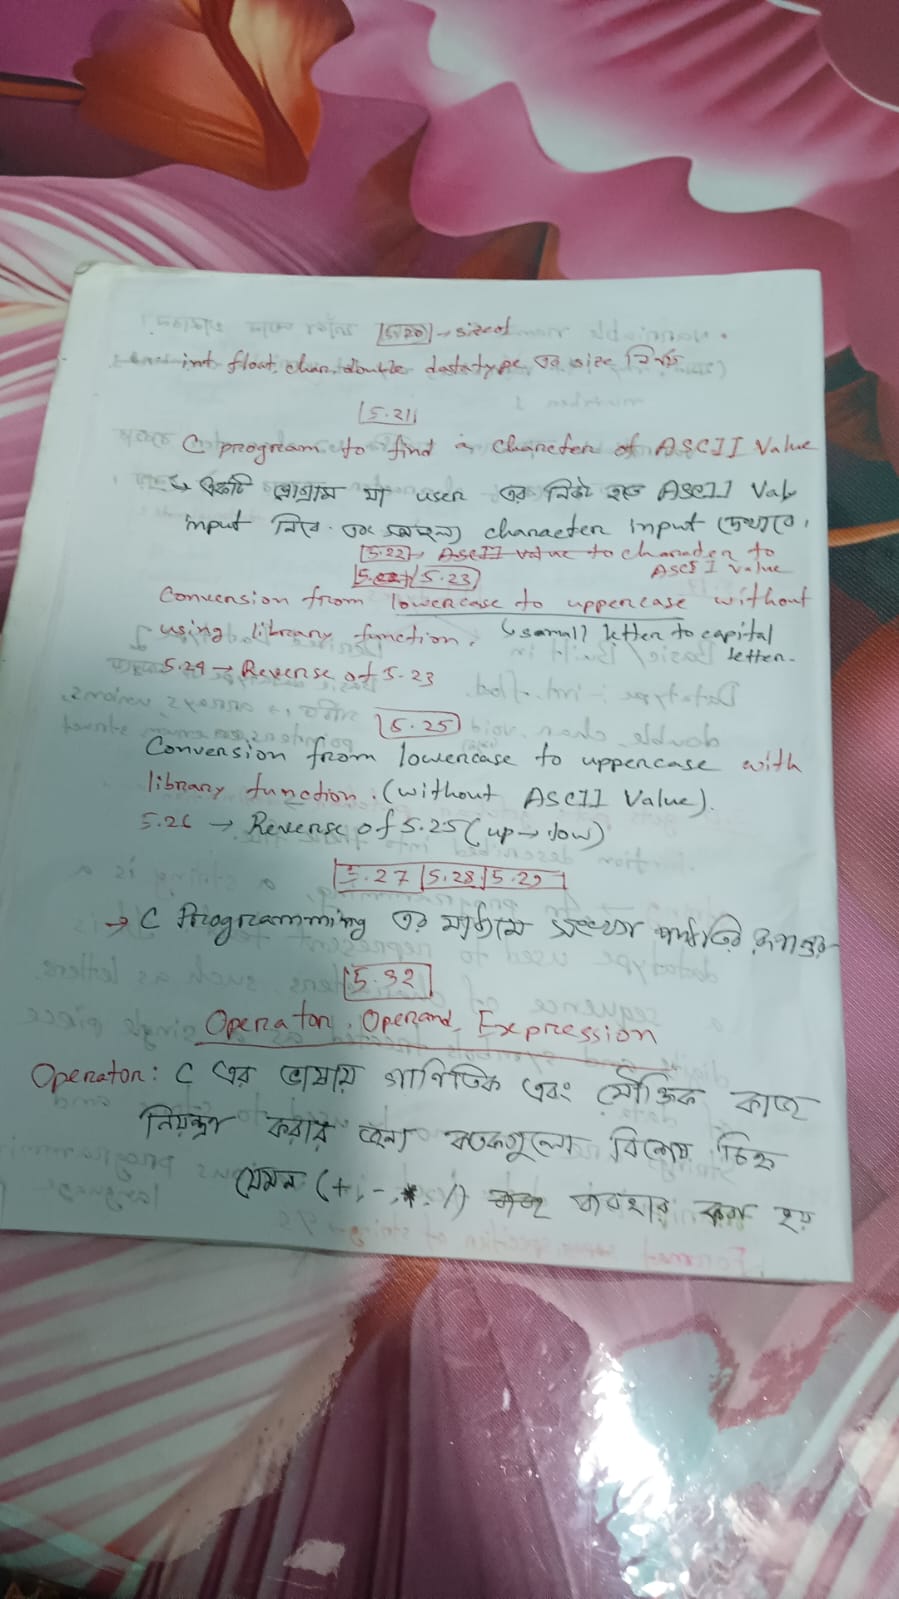 5.20 → sizeof
int float, char, double datatype এর size নির্ণয়
5.21
C program to find a character of ASCII Value
↳ একটি প্রোগ্রাম যা user এর নিকট হতে ASCII Value
input নিবে এবং character input দেখাবে।
5.22 → ASCII value to character to
ASCII value
5.23
Conversion from lowercase to uppercase without
using library function. ↳ small letter to capital
letter.
5.24 → Reverse of 5.23
5.25
Conversion from lowercase to uppercase with
library function. (without ASCII Value).
5.26 → Reverse of 5.25 (up → low)
5.27 5.28 5.29
→ C Programming এর মাধ্যমে সংখ্যা পদ্ধতির রূপান্তর
5.32
Operator, Operand, Expression
Operator: C এর ভাষায় গাণিতিক এবং যৌক্তিক কাজ
নিয়ন্ত্রণ করার জন্য কতকগুলো বিশেষ চিহ্ন
যেমন (+, -, *, /) ব্যবহার করা হয়